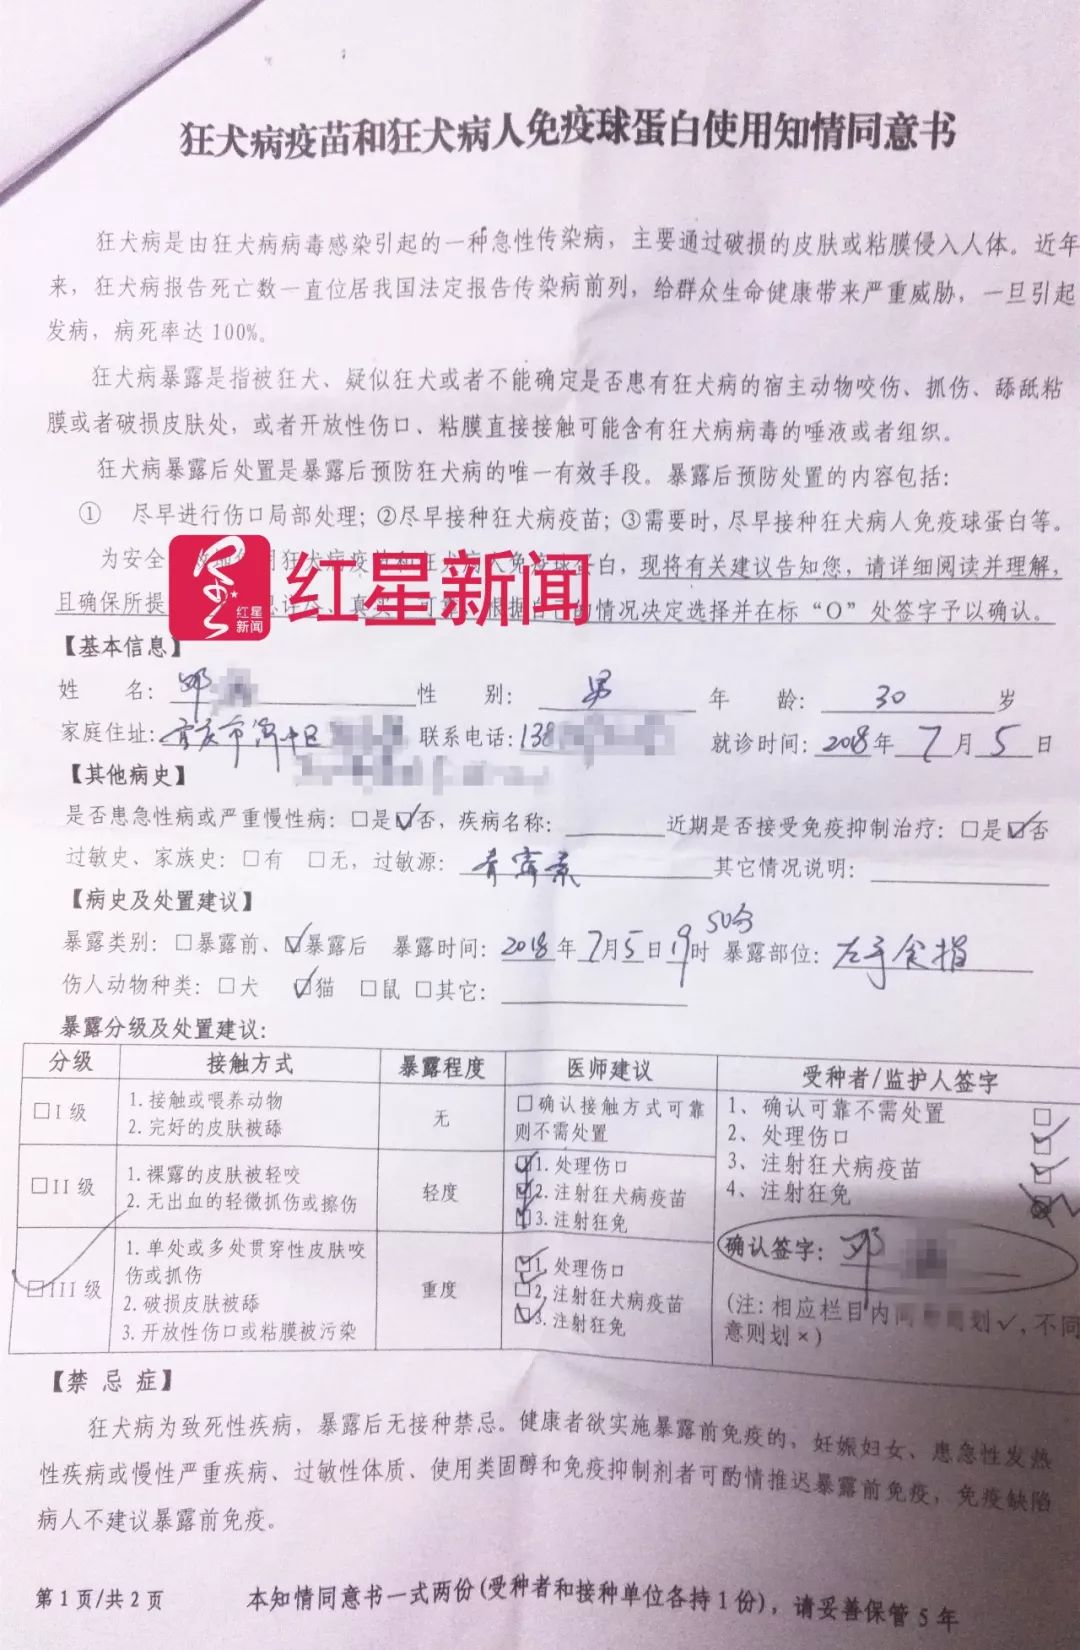 狂犬病疫苗和狂犬病人免疫球蛋白使用知情同意书
狂犬病是由狂犬病病毒感染引起的一种急性传染病，主要通过破损的皮肤或粘膜侵入人体。近年
来，狂犬病报告死亡数一直位居我国法定报告传染病前列，给群众生命健康带来严重威胁，一旦引起
发病，病死率达 100%。
狂犬病暴露是指被狂犬、疑似狂犬或者不能确定是否患有狂犬病的宿主动物咬伤、抓伤、舔舐粘
膜或者破损皮肤处，或者开放性伤口、粘膜直接接触可能含有狂犬病病毒的唾液或者组织。
狂犬病暴露后处置是暴露后预防狂犬病的唯一有效手段。暴露后预防处置的内容包括：
① 尽早进行伤口局部处理；②尽早接种狂犬病疫苗；③需要时，尽早接种狂犬病人免疫球蛋白等。
为安全 用狂犬病疫苗和狂犬病人免疫球蛋白，现将有关建议告知您，请详细阅读并理解，
且确保所提 真实 可 根据自己的情况决定选择并在标“O”处签字予以确认。
红星新闻
红星
新闻
【基本信息】
姓 名： 邓 性 别： 男 年 龄： 30 岁
家庭住址：重庆市 区 联系电话：138 就诊时间：2018年 7 月 5 日
【其他病史】
是否患急性病或严重慢性病：□是☑否，疾病名称： 近期是否接受免疫抑制治疗：□是☑否
过敏史、家族史：□有 □无，过敏源： 青霉素 其它情况说明：
【病史及处置建议】
暴露类别：□暴露前、☑暴露后 暴露时间：2018年7月5日19时50分 暴露部位：左手食指
伤人动物种类：□犬 ☑猫 □鼠 □其它：
暴露分级及处置建议：
分级 接触方式 暴露程度 医师建议 受种者/监护人签字
□I 级
1. 接触或喂养动物
2. 完好的皮肤被舔
无
□确认接触方式可靠
则不需处置
□II 级
1. 裸露的皮肤被轻咬
2. 无出血的轻微抓伤或擦伤
轻度
☑1. 处理伤口
☑2. 注射狂犬病疫苗
☑3. 注射狂免
☑III 级
1. 单处或多处贯穿性皮肤咬
伤或抓伤
2. 破损皮肤被舔
3. 开放性伤口或粘膜被污染
重度
☑1. 处理伤口
☑2. 注射狂犬病疫苗
☑3. 注射狂免
1、确认可靠不需处置 □
2、处理伤口 ☑
3、注射狂犬病疫苗 ☑
4、注射狂免
确认签字： 邓
（注：相应栏目内 划√，不同
意则划×）
【禁 忌 症】
狂犬病为致死性疾病，暴露后无接种禁忌。健康者欲实施暴露前免疫的，妊娠妇女、患急性发热
性疾病或慢性严重疾病、过敏性体质、使用类固醇和免疫抑制剂者可酌情推迟暴露前免疫，免疫缺陷
病人不建议暴露前免疫。
第 1 页/共 2 页 本知情同意书一式两份(受种者和接种单位各持 1 份)，请妥善保管 5 年